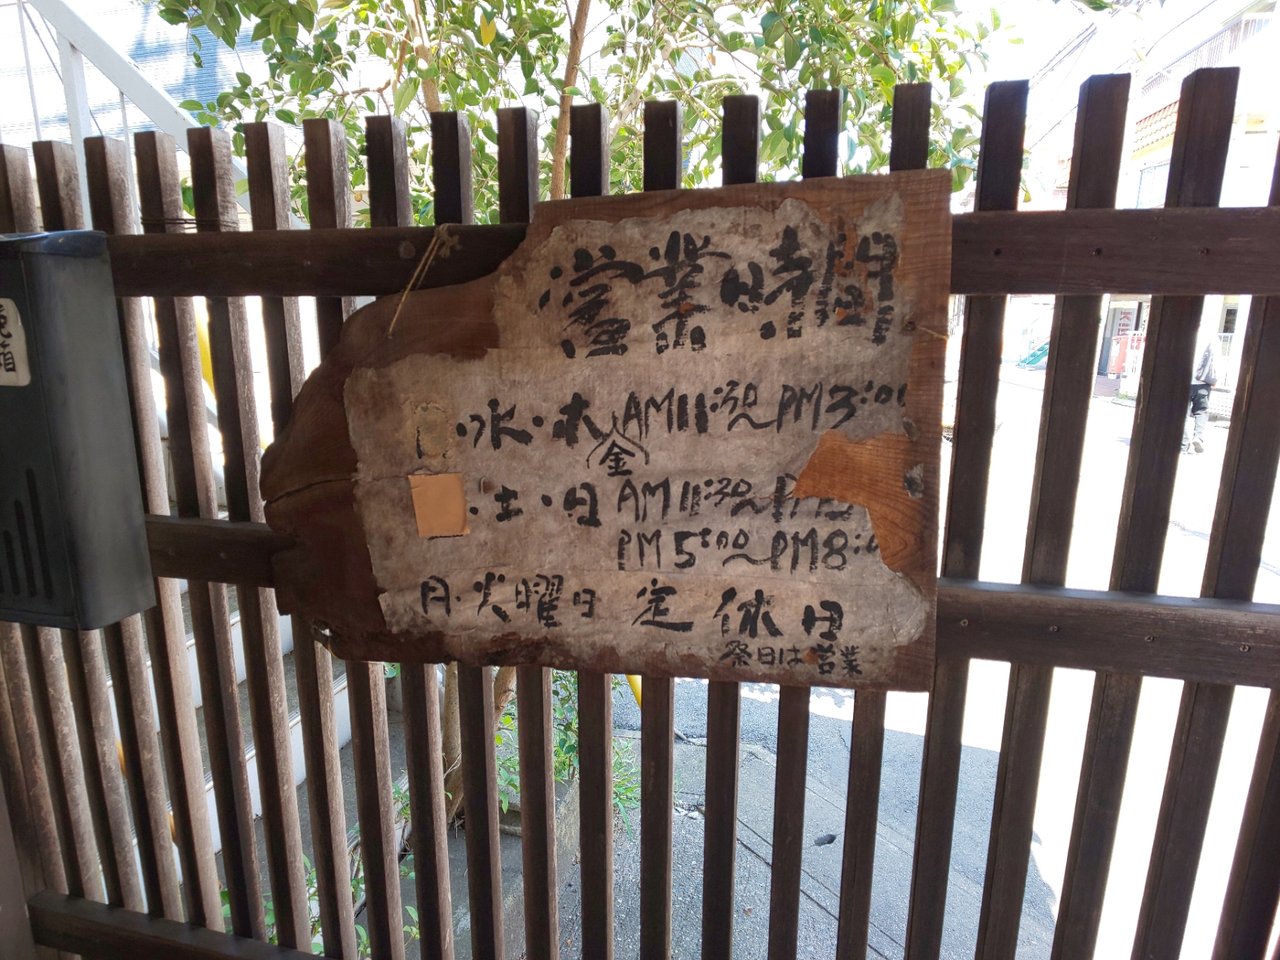 営業時間
・水・木 AM11:30〜PM3:00
金
・土・日 AM11:30〜PM
PM5:00〜PM8:0
月・火曜日 定休日
祭日は営業